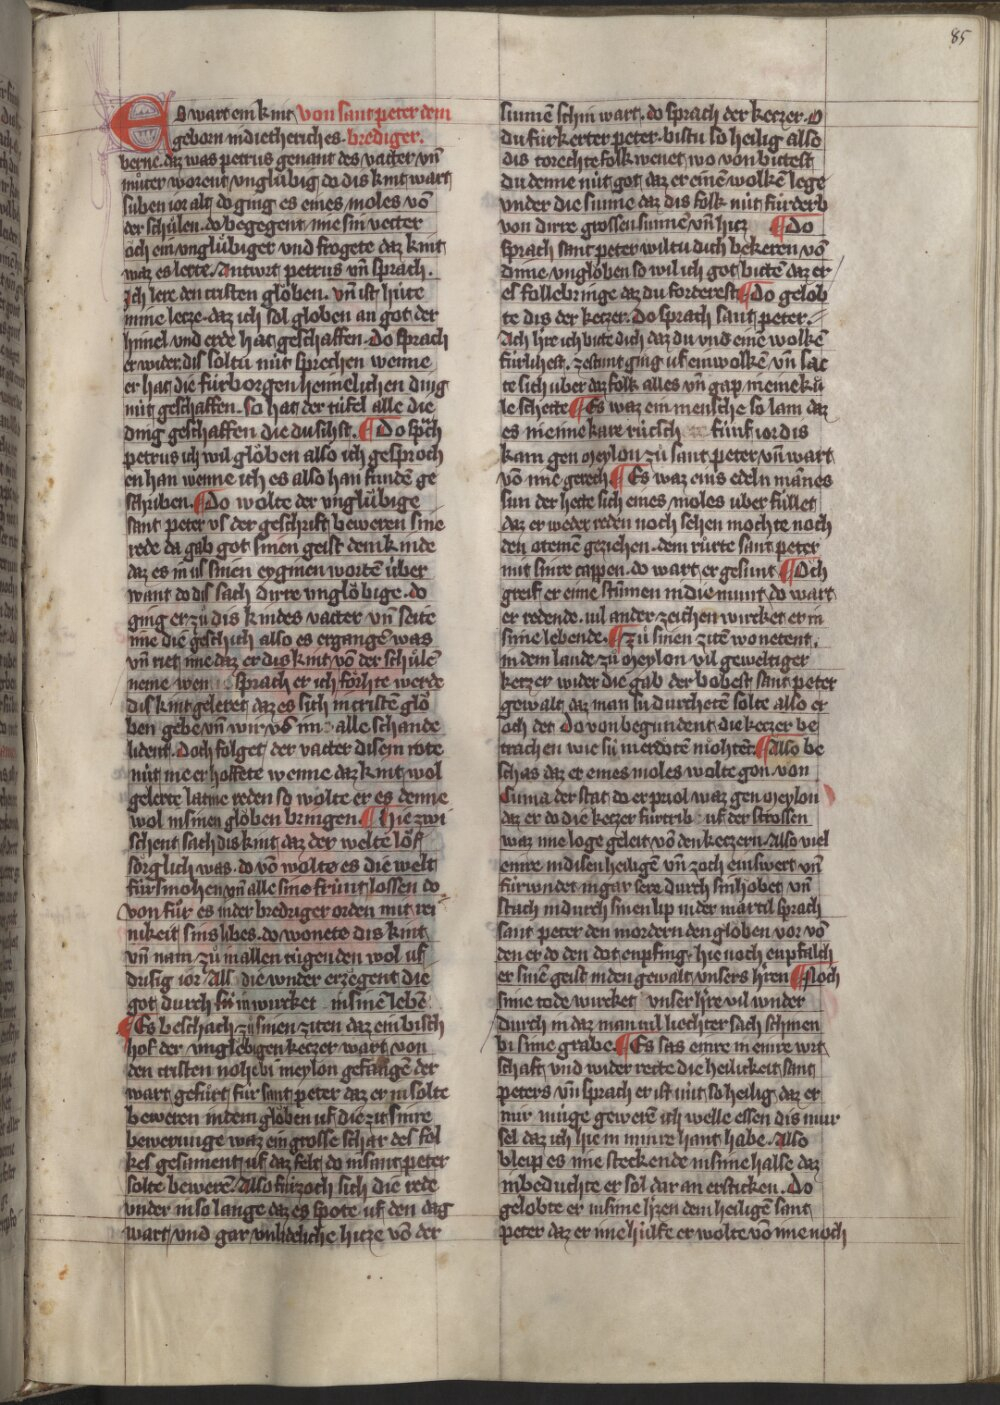 85
ES wart ein kint von sant peter dem
geborn in dietheriches brediger.
berne. daz was petrus genant des vatter vn̄
muͦter worent vngluͤbig do dis kint wart
siben ior alt do ging es eines moles vō
der schuͦlen. do begegent ime sin vetter
och ein vnglúbiger vnd frogete daz kint
waz es lerte. Antwrt petrus vn̄ sprach.
Ich lere den cristen glöben. vn̄ ist húte
mine letze. daz ich sol globen an got der
himel vnd erde hat geschaffen. Do sprach
er wider. dis soltu nút sprechen wenne
er hat die fúrborgen heimelichen ding
nút geschaffen. so hat der túfel alle die
ding geschaffen die du sihst. Do sprach
petrus ich wil glöben also ich gesproch
en han wenne ich es also han funde ge
schriben. Do wolte der vnglúbige
sant peter vs der geschrift beweren sine
rede da gab got sinen geist dem kinde
daz es in us sinen eyginen worten úber
want do dis sach dirre vnglöbige. do
ging er zuͦ dis kindes vatter vn̄ seite
ime die geschich also es ergangē was
vn̄ riet ime daz er dis kint vō der schuͦlē
neme wen sprach er ich förhte werde
dis kint geleret daz es sich in cristē glö
ben gebe vn̄ wir vō im alle schande
lident. Doch folget der vatter disem rote
nút me er hoffete wenne daz kint wol
gelerte latine reden so wolte er es denne
wol in sinen glöben bringen. Hie zwi
schent sach dis kint daz der welte löf
sörglich was. do vō wolte es die welt
fúrsmohen vn̄ alle sine frúnt lossen do
von fuͦr es in der brediger orden mit rei
nikeit sins libes. do wonete dis kint
vn̄ nam zuͦ in allen tugenden wol uf
drisig ior. All die wnder erzögent die
got durch in wircket in sinē lebē
Es beschach zuͦ sinen ziten daz ein bisch
hof der vnglöbigen ketzer wart von
den cristen nohe bi meylon gefangē der
wart gefuͤrt fúr sant peter daz er in solte
beweren in dem glöben uf die zit sinre
bewerunge waz ein grosse schar des fol
kes gesament uf daz felt do in sant peter
solte bewerē. Also fúrzoch sich die rede
vnder in so lange daz es spote uf den dag
wart vnd gar vnlideliche hitze vō der
sunnē schin wart. do sprach der ketzer. O
du fúrkerter peter. bistu so heilig also
dis torechte folk wenet wo von bittest
du denne nút got daz er einē wolkē lege
vnder die sunne daz dis folk nút fúrderb
von dirre grossen sunnē vn̄ hitz Do
sprach sant peter wiltu dich bekeren vō
dime vnglöben so wil ich got bittē daz er
es follebringe daz du forderest. Do gelob
te dis der ketzer. Do sprach sant peter.
Ach hre ich bitte dich daz du vns einē wolkē
fúrlihest. zestunt ging uf ein wolkē vn̄ sac
te sich uber daz folk alles vn̄ gap in eine kuͤ
le schette Es waz ein mensche so lam daz
es nie me kare rúcsch fúnf ior dis
kam gen meylon zuͦ sant peter vn̄ wart
vō ime gerech Es waz eins edeln mānes
sun der hette sich eines moles uber fúllet
daz er weder reden noch sehen mochte noch
den otemē geziehen. dem ruͦrte sant peter
mit sinre cappen. do wart er gesunt. Och
greif er eime stūmen in die munt do wart
er redende. vil ander zeichen wircket er in
sime lebende. Zuͦ sinen zitē wonetent
in dem lande zuͦ meylon vil geweltiger
ketzer wider die gab der bobest sant peter
gewalt daz man sú durchetē solte also er
och det do von begundent die ketzer be
trachen wie sú in ertötē möhtēt. Also be
schas daz er eines moles wolte gon von
Cuma der stat do er priol waz gen meylon
daz er do die ketzer fúrtrib uf der strossen
waz ime loge geleit vō den ketzern. Also viel
einre in disen heiligē vn̄ zoch ein swert vn̄
fúrwndet in gar sere durch sin hobet vn̄
stach in durch sinen lip in der martil sprach
sant peter den mordern den glöben vor vō
den er do den dot enpfing. hie noch enpfalch
er sinē geist in den gewalt vnsers hren Noch
sime tode wircket vnser hre vil wnder
durch in daz man vil liechter sach schinen
bi sime grabe. Es sas einre in einre wirt
schaft vnd wider rette die heilickeit sant
peters vn̄ sprach er ist nút so heilig daz er
mir múge gewerē ich welle essen dis mur
sel daz ich hie in minre hant habe. Also
bleip es ime steckende in sime halse daz
in beduchte er sol dar an ersticken. Do
gelobte er in sime hrzen dem heiligē sant
peter daz er ime húlfe er wolte vō ime noch